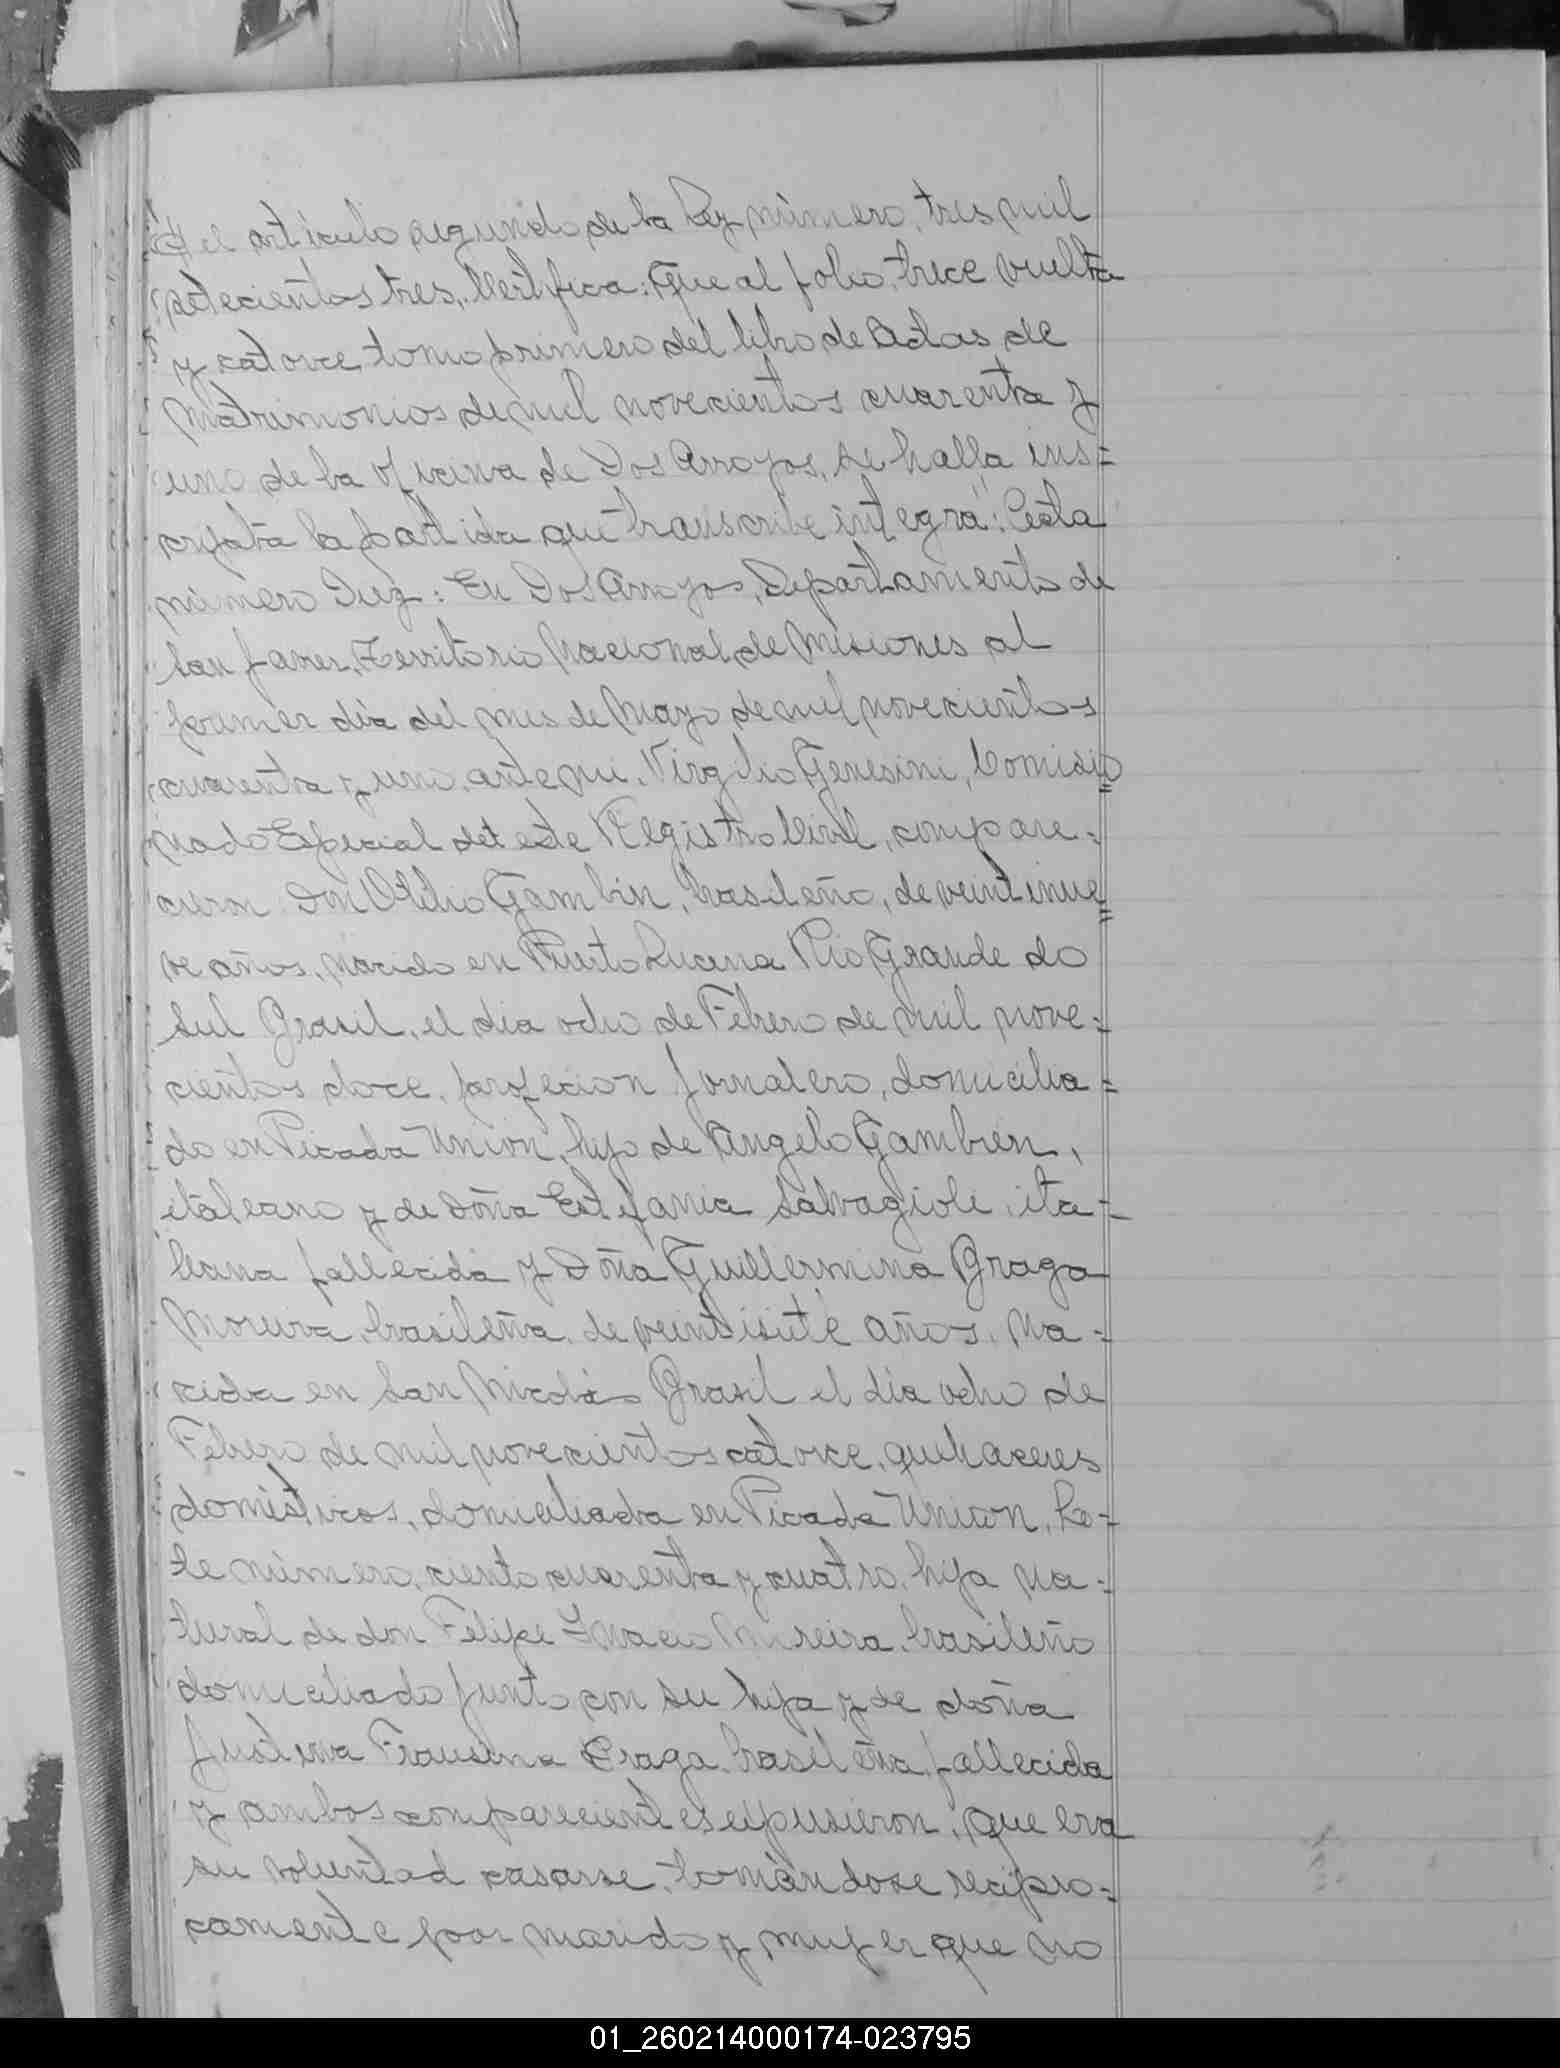 el artículo segundo de la Ley número, tres mil
setecientos tres, Certifica: Que al folio, trece vuelta
y catorce tomo primero del libro de Actas de
Matrimonios de mil novecientos cuarenta y
uno de la oficina de Dos Arroyos, se halla ins=
cripta la partida que transcribe integra: "Acta
número Diez: En Dos Arroyos, Departamento de
San Javier, Territorio Nacional de Misiones al
primer día del mes de Mayo de mil novecientos
cuarenta y uno, ante mi, Virgilio Genesini, Comisio
nado Especial det este Registro Civil, compare=
cieron Don Otilio Gambin, brasileño, de veintinue
ve años, nacido en Puerto Lucena Rio Grande do
Sul Brasil, el día ocho de Febrero de mil nove=
cientos doce, profecion jornalero, domicilia=
do en Picada Union, hijo de Angelo Gambien,
italeano y de doña Estefania Salvagioli, ita=
liana fallecida y Doña Guillermina Braga
Moreira, brasileña, de veintisiete años, na=
cida en San Nicolás Brasil el día ocho de
Febrero de mil novecientos catorce, quehaceres
domésticos, domiciliada en Picada Union, Lo=
te número, ciento cuarenta y cuatro, hija na=
tural de don Felipe Ignacio Moreira, brasileño
domiciliado junto con su hija y de doña
Justina Fransina Braga, brasileña, fallecida
y ambos comparecientes expusieron, que era
su voluntad casarse, tomándose recipro=
camente por marido y mujer que no
01_260214000174-023795